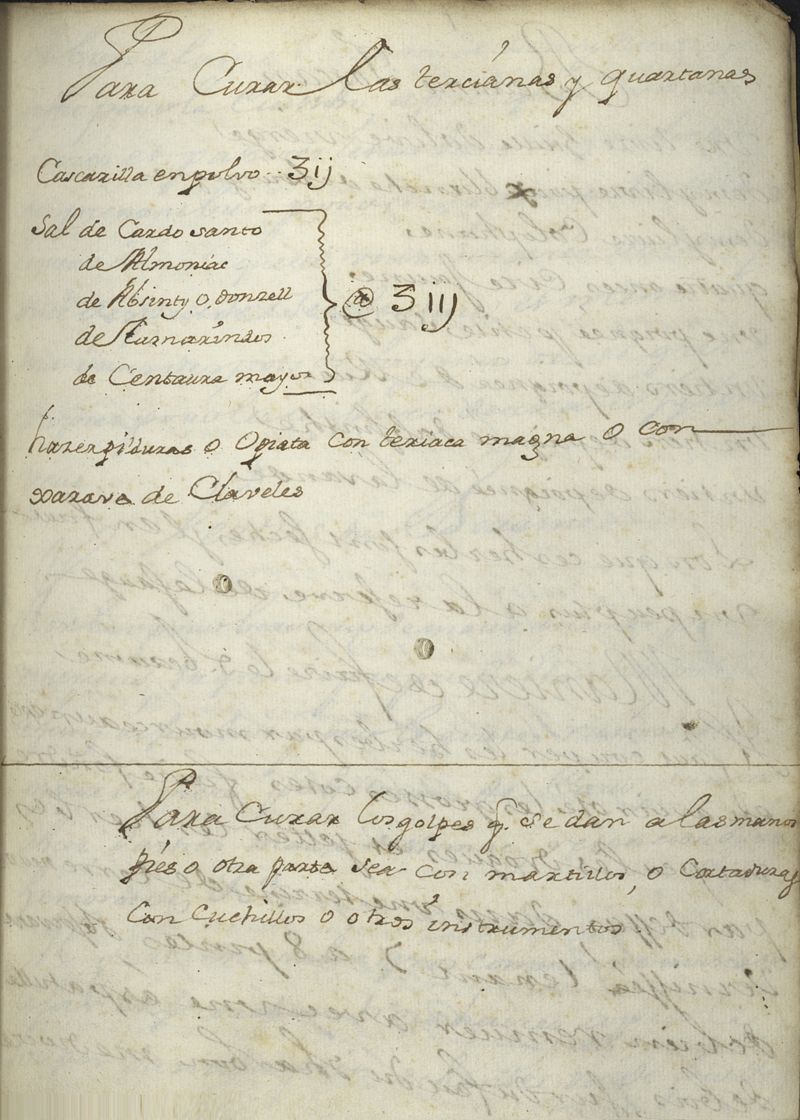 Para Curar las tercianas y quartanas
Cascarilla en polvo .. ʒij
Sal de Cardo santo
de Almoniac
de Absinty o donzell
de Tamarindos
de Centaura mayor
@ ʒiij
hazer piduras o Opiata con teriaca magna o con
xarave de Claveles
Para Curar los golpes q. se dan a las manos
pies o otra parte sea con martillos, o Cortaduras
con Cuchillos o otros instrumentos.